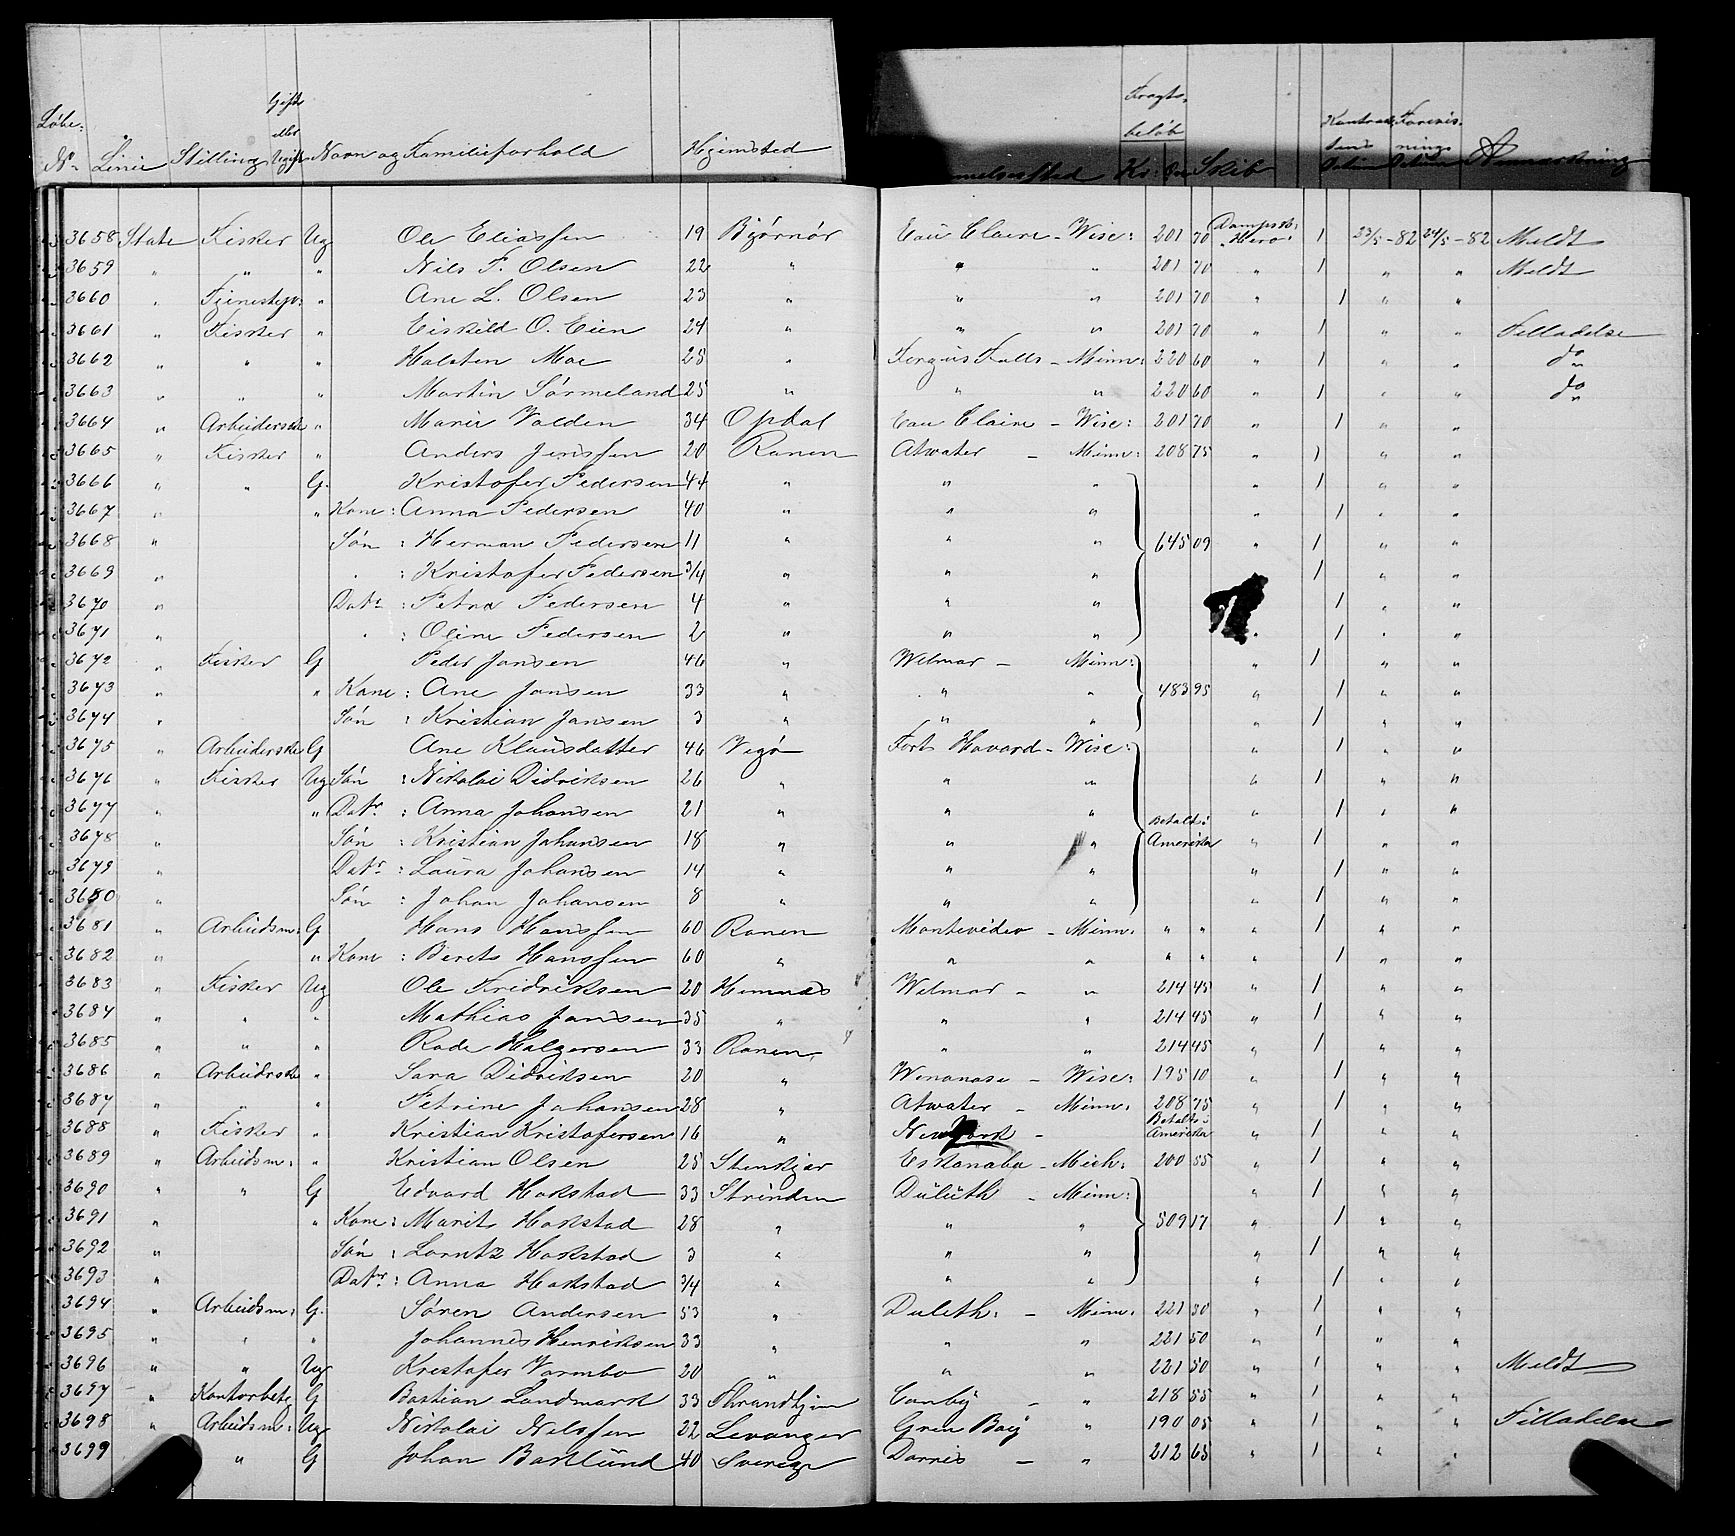 Løbe: Gifte eller Fragts- beløb Kontrac- Forevis-
No Linie Stilling Ugift Navn og Familieforhold Hjemsted Kr: Skib dens Datum nings Datum Anmærkning
3658 State Fisker Ug Ole Eliassen 19 Bjørnør Eau Claire - Wisc: 201 70 Dampsk: Hero 1 23/5 - 82 24/5 - 82 Meldt
3659 " " " Nils P. Olsen 22 " " " 201 70 " 1 " " Meldt
3660 " Tjenestepi: " Ane L. Olsen 23 " " " 201 70 " 1 " "
3661 " Fisker " Eiskild O. Eien 24 " " " 201 70 " 1 " " Tilladelse
3662 " " " Halsten Moe 25 " Fergus Falls - Minn: 220 60 " 1 " " do
3663 " " " Martin Sörmeland 25 " " " 220 60 " 1 " " do
3664 " Arbeiderske " Marit Volden 34 Opdal Eau Claire - Wisc: 201 70 " 1 " "
3665 " Fisker " Anders Jenssen 20 Ranen Atwater - Minn: 208 75 " 1 " "
3666 " " G. Kristofer Pedersen 44 " " " " 1 " "
3667 " " Kone: Anna Pedersen 40 " " " " 1 " "
3668 " Søn: Herman Pedersen 11 " " " 645 09 " 1 " "
3669 " " : Kristofer Pedersen 3/4 " " " 1 " "
3670 " Datr: Petra Pedersen 4 " " " 1 " "
3671 " " : Oline Pedersen 2 " " " " 1 " "
3672 " Fisker G Peder Jansen 46 " Wilmar - Minn: " 1 " "
3673 " " Kone: Ane Jansen 33 " " " 483 95 " 1 " "
3674 " Søn: Kristian Jansen 3 " " " " 1 " "
3675 " Arbeiderske G Ane Klausdatter 46 Vegø Fort Havard - Wisc: " 1 " "
3676 " Fisker Ug Søn: Nikolai Didriksen 26 " " " " 1 " "
3677 " " Datr: Anna Johansen 21 " " " " 1 " "
3678 " Søn: Kristian Johansen 18 " " " Betalt i Amerika " 1 " "
3679 " Datr: Laura Johansen 14 " " " " 1 " "
3680 " Søn: Johan Johansen 8 " " " " 1 " "
3681 " Arbeidsm: G Hans Hanssen 60 Ranen Montevideo - Minn: " " " 1 " "
3682 " " Kone: Berets Hanssen 60 " " " " " " 1 " "
3683 " Fisker Ug Ole Fredriksen 20 Hemnæs Wilmar - " 214 45 " 1 " "
3684 " " " Mathias Jansen 35 " " " 214 45 " 1 " "
3685 " " " Holgersen 33 Ranen " " 214 45 " 1 " "
3686 " Arbeidrske " Sara Didriksen 20 " - Wisc: 195 10 " 1 " "
3687 " " " Petrine Johansen 28 " Atwater - Minn: 208 75 " 1 " "
3688 " Fisker " Kristian Kristofersen 16 " New York - Betalt i Amerika " 1 " "
3689 " Arbeidsm: " Kristian Olsen 25 Stenkjær Eskanaba - Mich: 200 55 " 1 " "
3690 " " G Edvard Hokstad 33 Strinden Duluth - Minn: " 1 " "
3691 " " Kone: Marit Hokstad 28 " " " 509 17 " 1 " "
3692 " Søn: Lorntz Hokstad 3 " " " " 1 " "
3693 " Datr: Anna Hokstad 3/4 " " " " 1 " "
3694 " Arbeidsm: G. Søren Andersen 53 " Duluth: - Minn: 221 50 " 1 " "
3695 " " " Johannes Henriksen 33 " " " 221 50 " 1 " "
3696 " " Ug Kristofer Vormbo 20 " " " 221 50 " 1 " " Meldt
3697 " Kontorbetj G Bastian Landmark 33 Thrandhjem Canby - " 218 55 " 1 " "
3698 " Arbeidsm: Ug Nikolai Nilssen 22 Levanger Gren Bay " 190 05 " 1 " " Tilladelse
3699 " G Johan Backlund 40 Sverige - " 212 65 " 1 " "